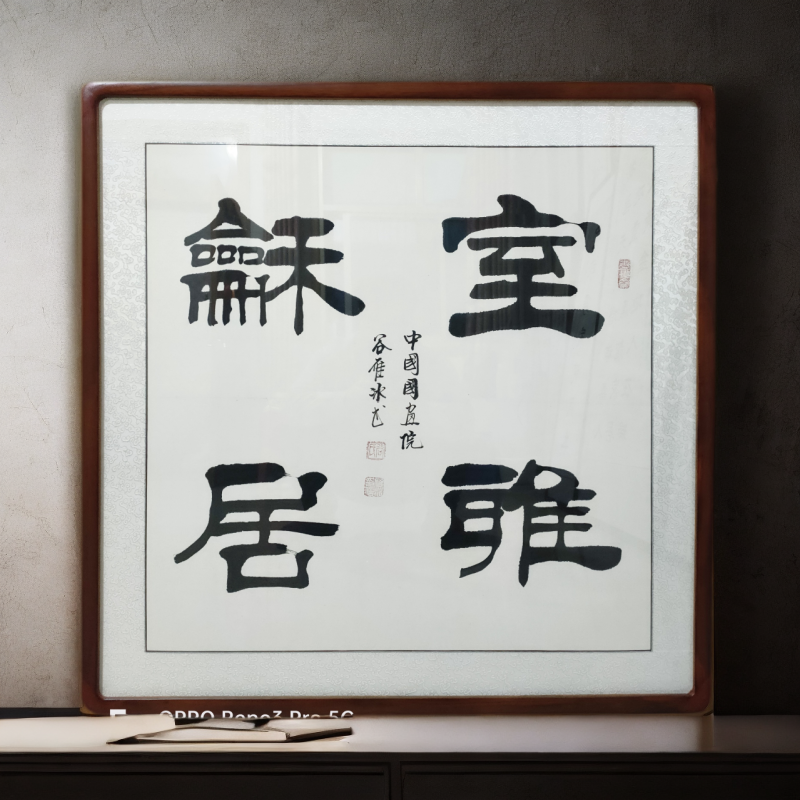 室雅
龢居
中國國画院
谷雁冰书
OPPO Reno3 Pro 5G